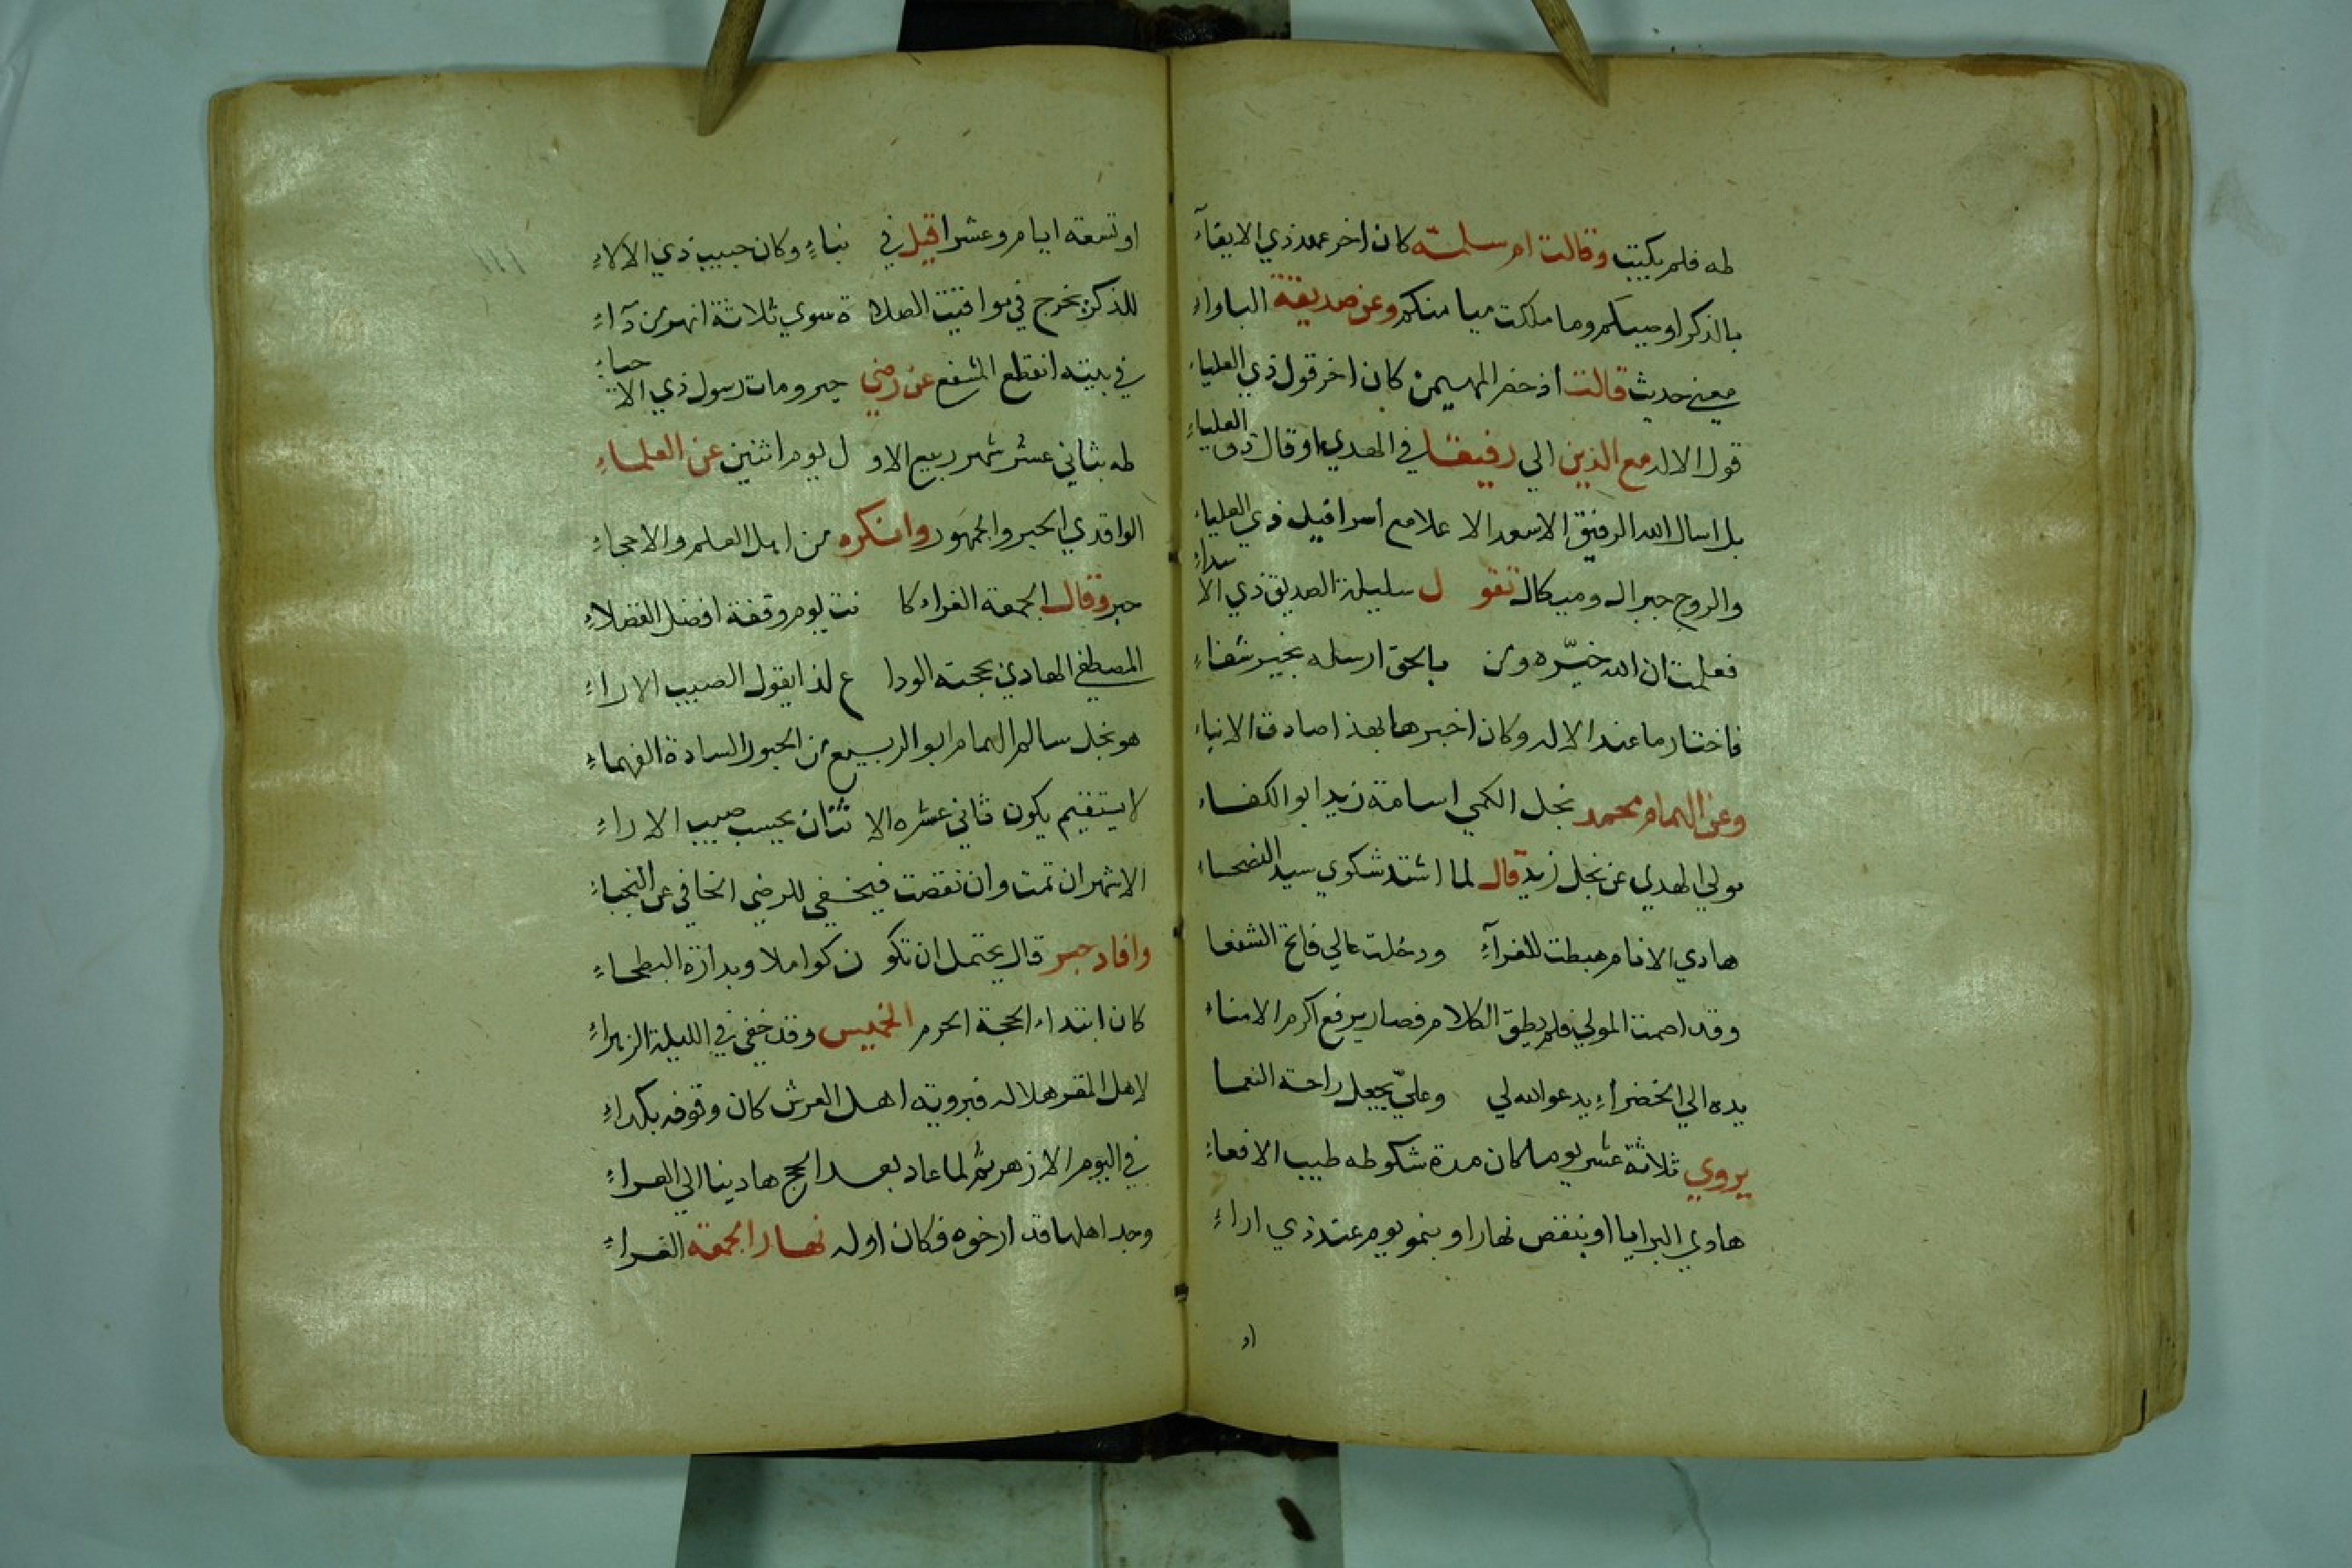 طه فلم يكيت وقالت ام سلمة كان اخر عهد ذي الايفاء
بالذكر اوصيكم وما ملكت ميامنكم وعن صديقة الباواء
معنى حديث قالت اذ حضر المهيمن كان اخر قول ذي العلياء
قول الاله مع الذين الي رفيقا في الهدي او قال ذو العلياء
بل اسال الله الرفيق الاسعد الا علا مع اسرافيل ذي العلياء
والروح جبرال وميكال تقو ل سليلة الصديق ذي الا سداء
فعلمت ان الله خيّره ومن بالحق ارسله بخير شفاء
فاختار ما عند الاله وكان اخبرها بهذا صادق الانباء
وعن الهمام محمد نجل الكمي اسامة زيد ابو الكفاء
مولي الهدي عن نجل زيد قال لما اشتد شكوي سيد النصحاء
هادي الانام هبطت للغرآء ودخلت عالي فاتح الشفعا
وقد اصمت المولي فلم يطق الكلام فصار يرفع اكرم الامناء
يده الي الخضراء يدعو الله لي وعليّ يجعل راحة النعما
يروي ثلاثة عشر يوما كان مدة شكو طه طيب الافعاء
هادي البرايا او بنقص نهارا و بنمو يوم عند ذي اراء
او
او تسعه ايام وعشرا قيل في نباء وكان حبيب ذي الالاء
للذكر يخرج في مواقيت الصلا ة سوي ثلاثة انهر من دآء
في بيته انقطع المشفع عن رضي حبر ومات رسول ذي الا حباء
طه بثاني عشر شهر ربيع الاو ل يوم اثنين عن العلماء
الواقدي الحبر والجمهور وامنكره من اهل العلم والاحجاء
حبر وقال الجمعة الغراء كا نت يوم وقفة افضل الفضلاء
المصطفي الهادي بحجته الودا ع لذا يقول الصيب الاراء
هو نجل سالم الهمام ابو الربيع من الحبور السادة الفهماء
لا يستقيم يكون ثاني عشره الا ثنان بحسب صيب الاراء
الاشهر ان تمت وان نقصت فيخفي للرضي الخافي عن النجباء
وافاد حبر قال يحتمل ان تكو ن كواملا وبدازة البطحاء
كان ابتداء الحجة الحرم الخميس وقد خفي في الليلة الزهراء
لاهل المقر هلاله فبروية اهل العرش كان وقوفه بكداء
في اليوم الازهر ثم لما عاد بعد الحج هادينا الي العراء
وجد اهلها قد ارخوه فكان اوله نهار الجمعة الغراء